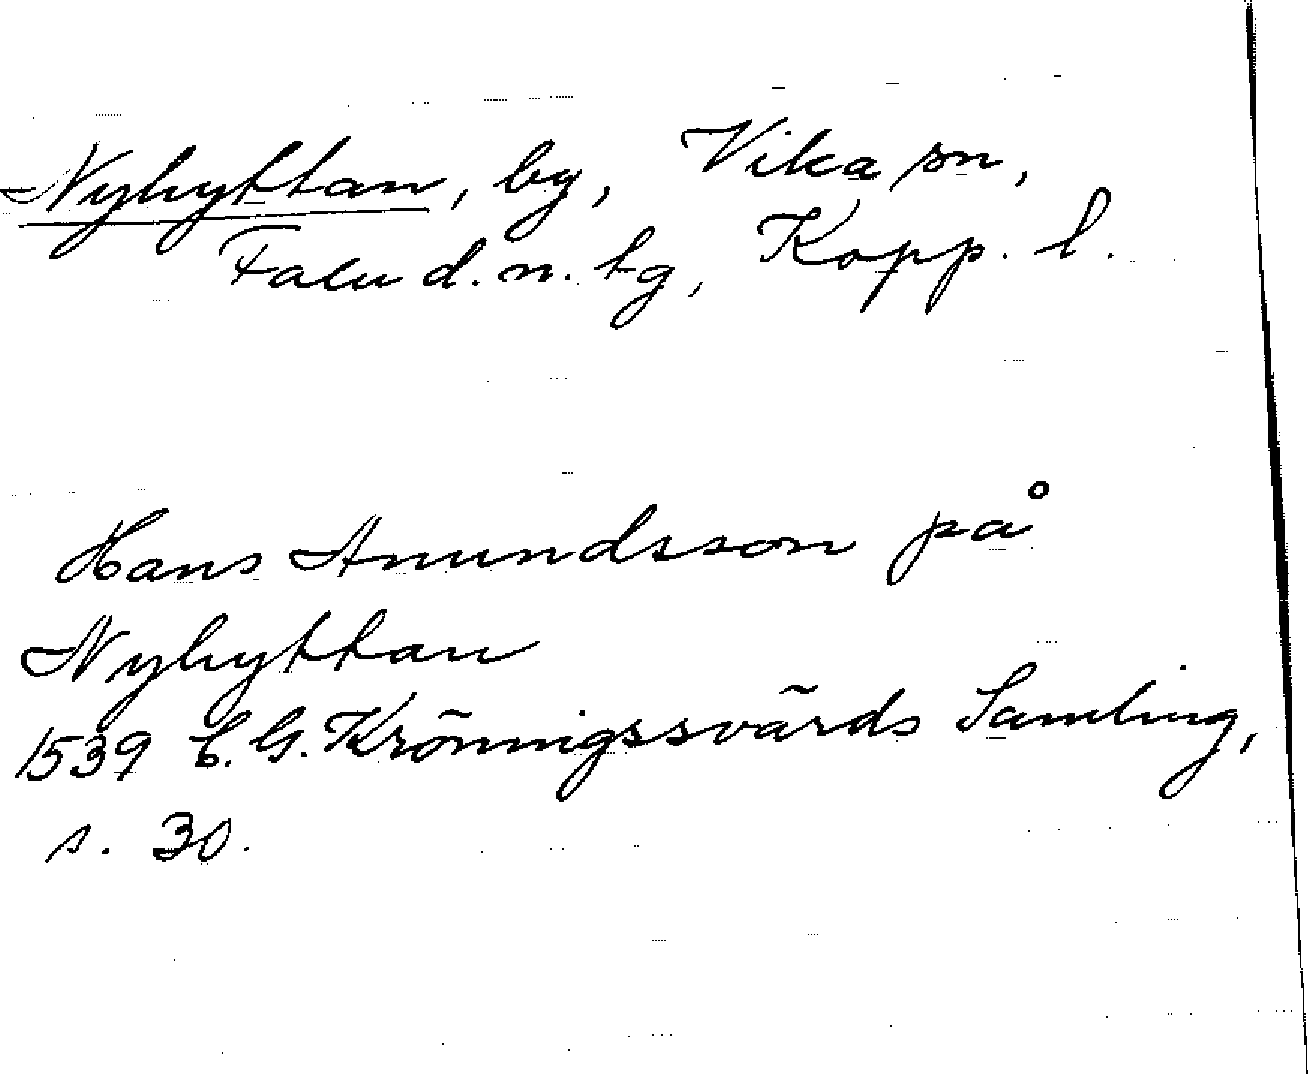 Nyhyttan, by, Vika sn,
Falu d. n. tg, Kopp. l.
Hans Anundsson på
Nyhyttan
1539 C. G. Kröningssvärds Samling,
s. 30.